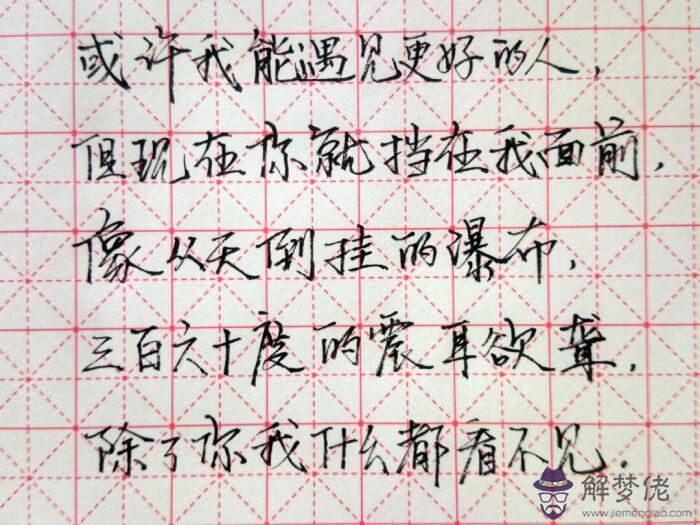 或许我能遇见更好的人，
但现在你就挡在我面前，
像从天倒挂的瀑布，
三百六十度的震耳欲聋，
除了你我什么都看不见.
解梦佬
www.jiemenglao.com